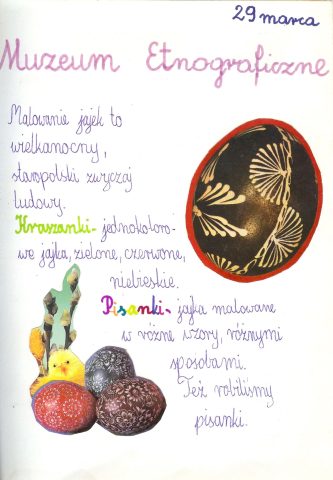 29 marca
Muzeum Etnograficzne
Malowanie jajek to
wielkanocny,
staropolski zwyczaj
ludowy.
Kraszanki - jednokoloro-
we jajka, zielone, czerwone,
niebieskie.
Pisanki - jajka malowane
w różne wzory, różnymi
sposobami.
Też robiliśmy
pisanki.